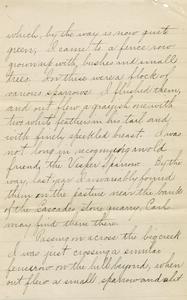 which, by the way is now quite
green, I came to a fence row
grown up with bushes and small
trees. In these were a flock of
various sparrows. I flushed them,
and out flew a grayish one with
two white feathers in his tail and
with finely speckled breast. I was
not long in recognizing an old
friend, the Vesper Sparrow. By the
way, last year I invariably found
them on the pasture near the bank
of the Cascades stone quarry, Carl
may find them there.
Passing on across the big creek
I was just crossing a similar
fencerow on the hill beyond, when
out flew a small sparrow and alit